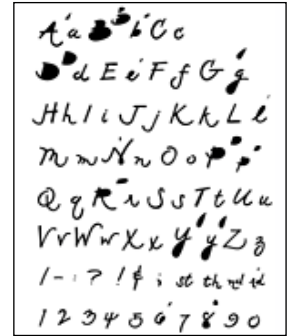 A a B b C c
D d E e F f G g
H h I i J j K k L l
M m N n O o P p
Q q R r S s T t U u
V v W w X x Y y Z z
! - : ? ! & ; st th nd rd
1 2 3 4 5 6 7 8 9 0